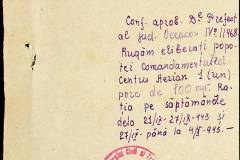 Conf. aprob. Dlui Prefect
al jud. Oceacov Nº 1468
Rugăm eliberați popo
tei Comandamentului
Centru Aerian 1 (un)
pore de 100 kgr. Ra
ția pe săptămânile
dela 21/IX-27/IX-943 și
27/IX- până la 4/X-943.-